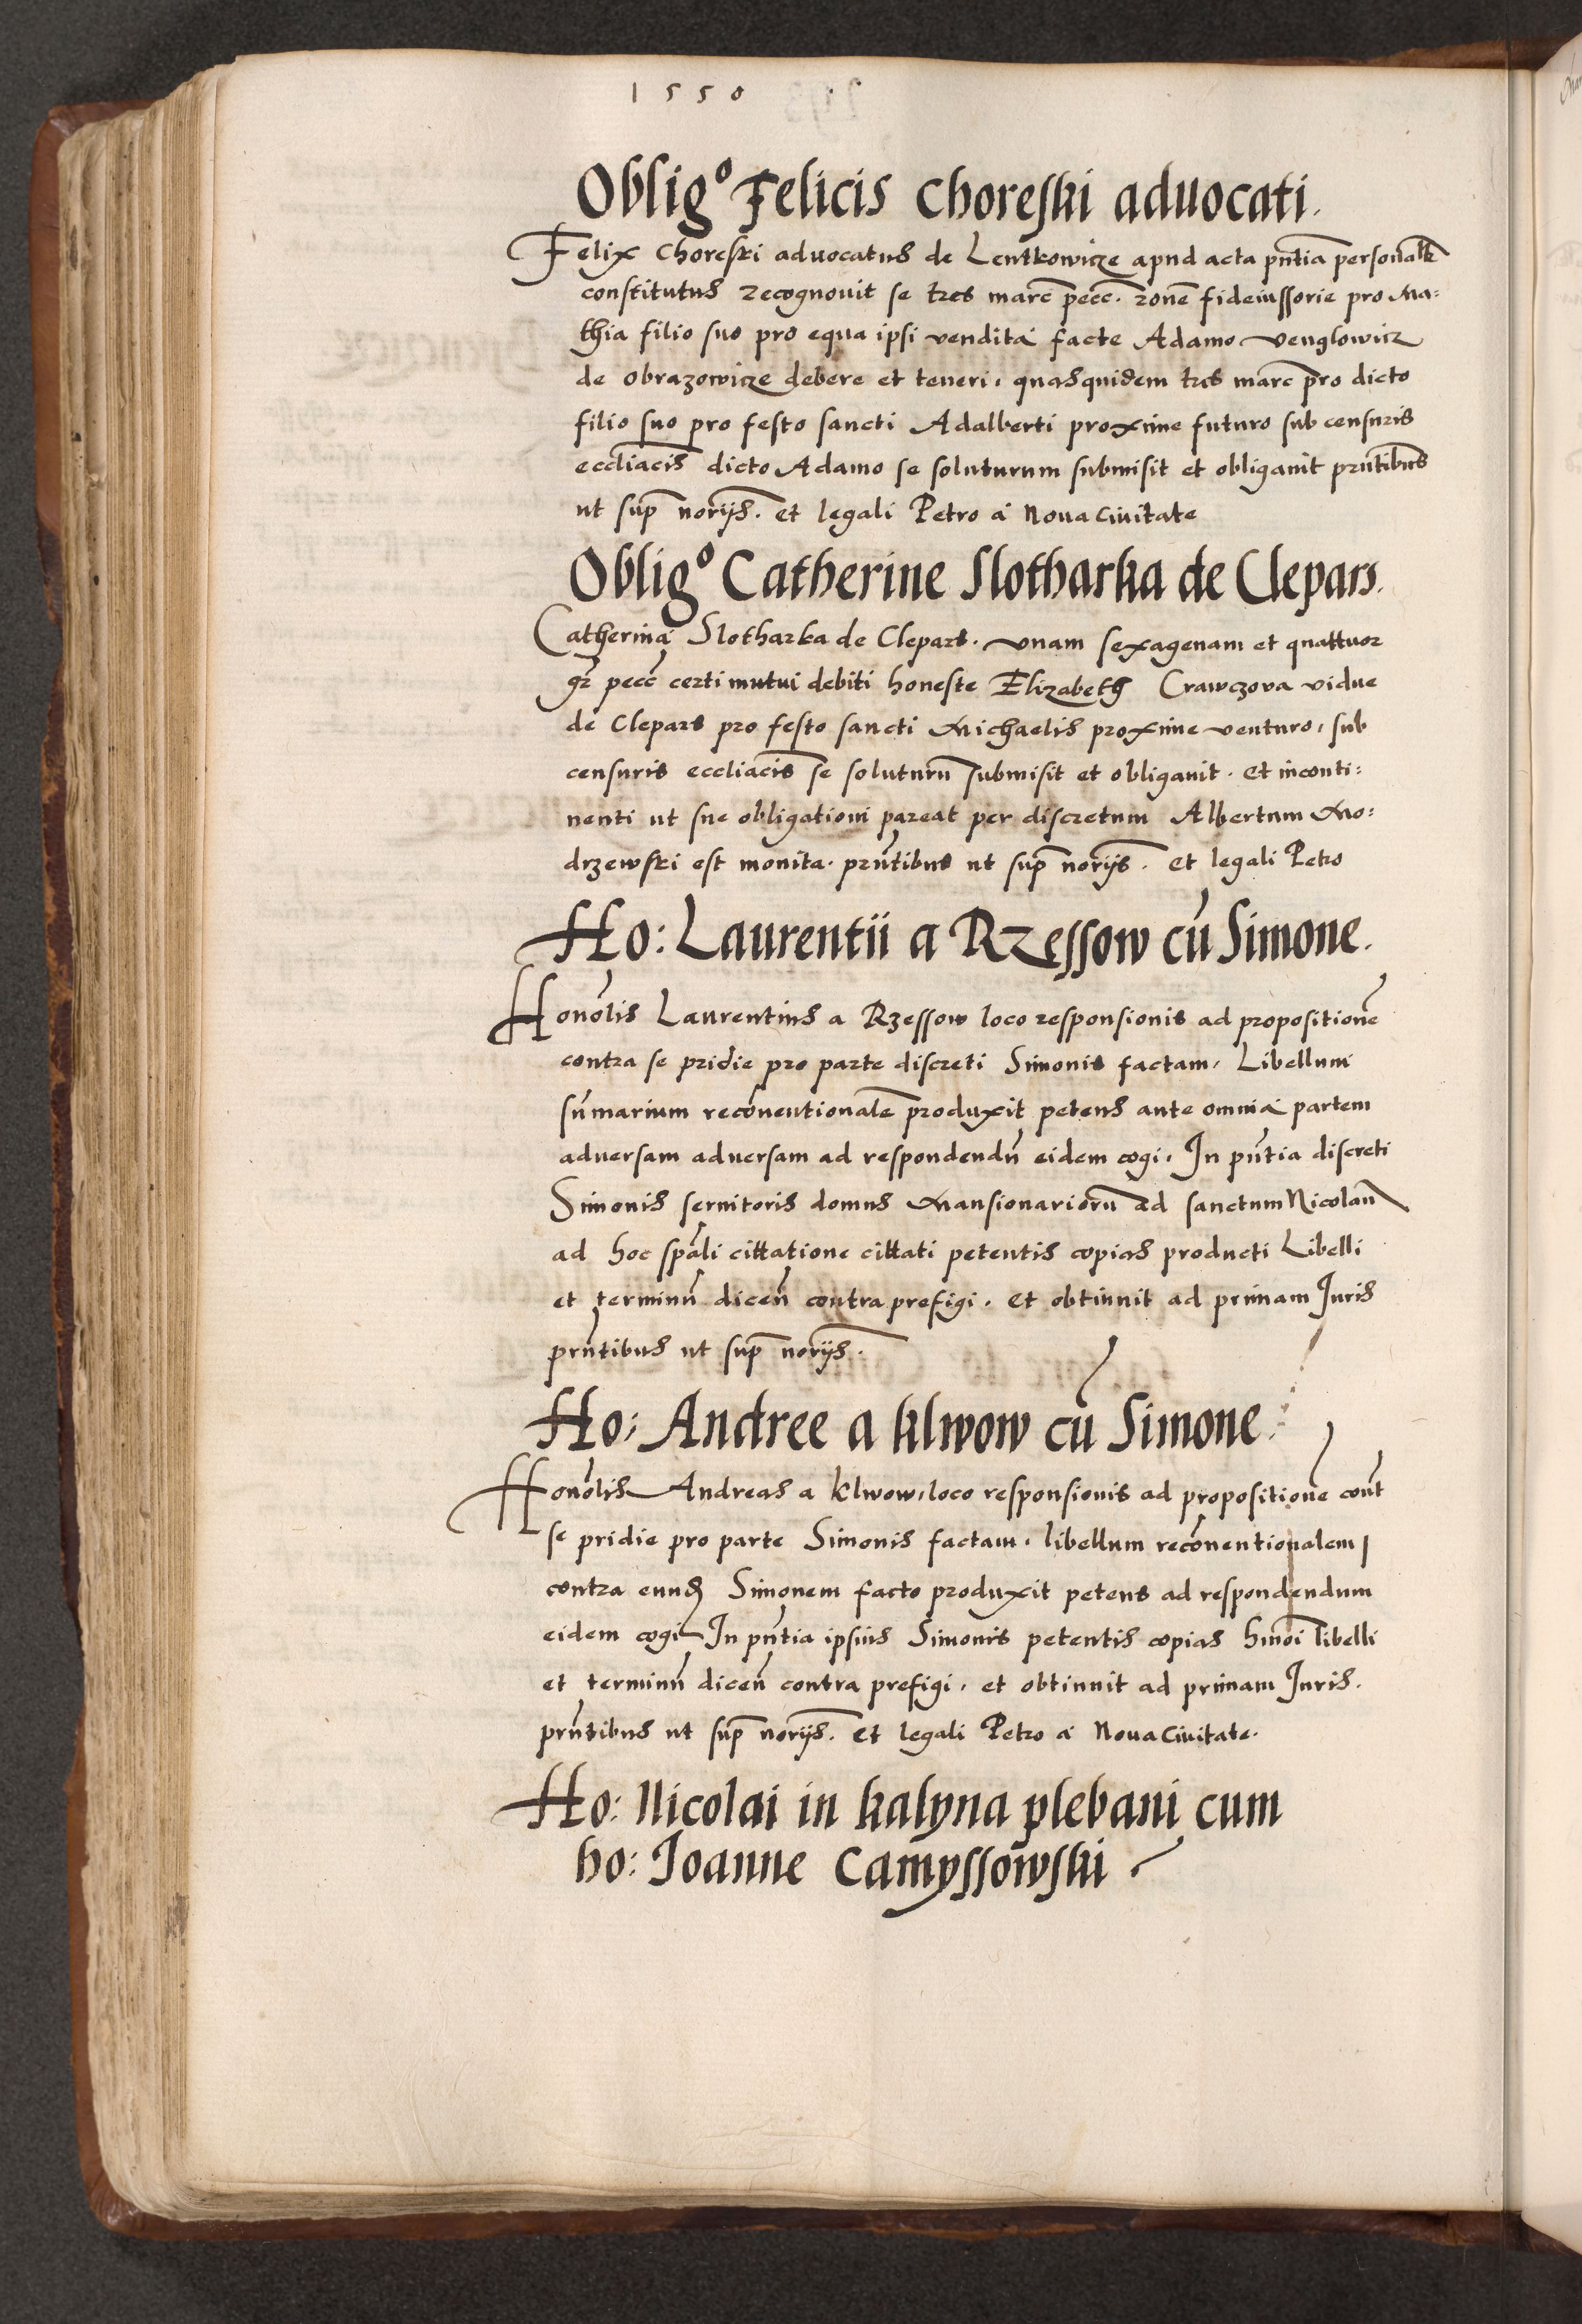 1550
Oblig⁰ Felicis Choreski aduocati.
Felix Choreski aduocatus de Lentkowicze apud acta pñtia personalr̃
constitutus recognouit se tres marc̃ pecc̃. rõne fideiussorie pro Ma=
thia filio suo pro equa ipsi vendita facte Adamo Venglowicz
de Obrazowicze debere et teneri, quasquidem tres marc̃ pro dicto
filio suo pro festo sancti Adalberti proxime futuro sub censuris
eccl̃iacis dicto Adamo se soluturum submisit et obligauit pñtibus
ut sup̃ nor̃ijs. et legali Petro a Noua Ciuitate
Oblig⁰ Catherine Slotharka de Clepars.
Catherina Slotharka de Clepars. vnam sexagenam et quattuor
gr̃ pecc̃ certi mutui debiti honeste Elizabeth Crawczova vidue
de Clepars pro festo sancti Michaelis proxime venturo, sub
censuris eccl̃iacis se soluturũ submisit et obligauit. et inconti=
nenti ut sue obligationi pareat per discretum Albertum Mo=
drzewski est monita. prñtibus ut sup̃ nor̃ijs. et legali Petro
Ho: Laurentii a Rzessow cũ Simone.
Honor̃lis Laurentius a Rzessow loco responsionis ad propositionẽ
contra se pridie pro parte discreti Simonis factam, Libellum
sũmarium recõuentionalẽ produxit petens ante omnia partem
aduersam aduersam ad respondendũ eidem cogi, In pñtia discreti
Simonis seruitoris domus Mansionariorũ ad sanctum Nicolaũ
ad hoc spãli cittatione cittati petentis copias producti Libelli
et terminũ diceñ contra prefigi. et obtinuit ad primam Juris
prñtibus ut sup̃ nor̃ijs.
Ho: Andree a Klwow cũ Simone.
Honor̃lis Andreas a Klwow, loco responsionis ad propositionẽ cont̃
se pridie pro parte Simonis factam. libellum recõuentionalem
contra eund̃ Simonem facto produxit petens ad respondendum
eidem cogi In pñtia ipsius Simonis petentis copias hmõi libelli
et terminũ diceñ contra prefigi, et obtinuit ad primam Juris.
prñtibus ut sup̃ nor̃ijs. et legali Petro a Noua Ciuitate.
Ho: Nicolai in Kalyna plebani cum
ho: Joanne Camyssowski